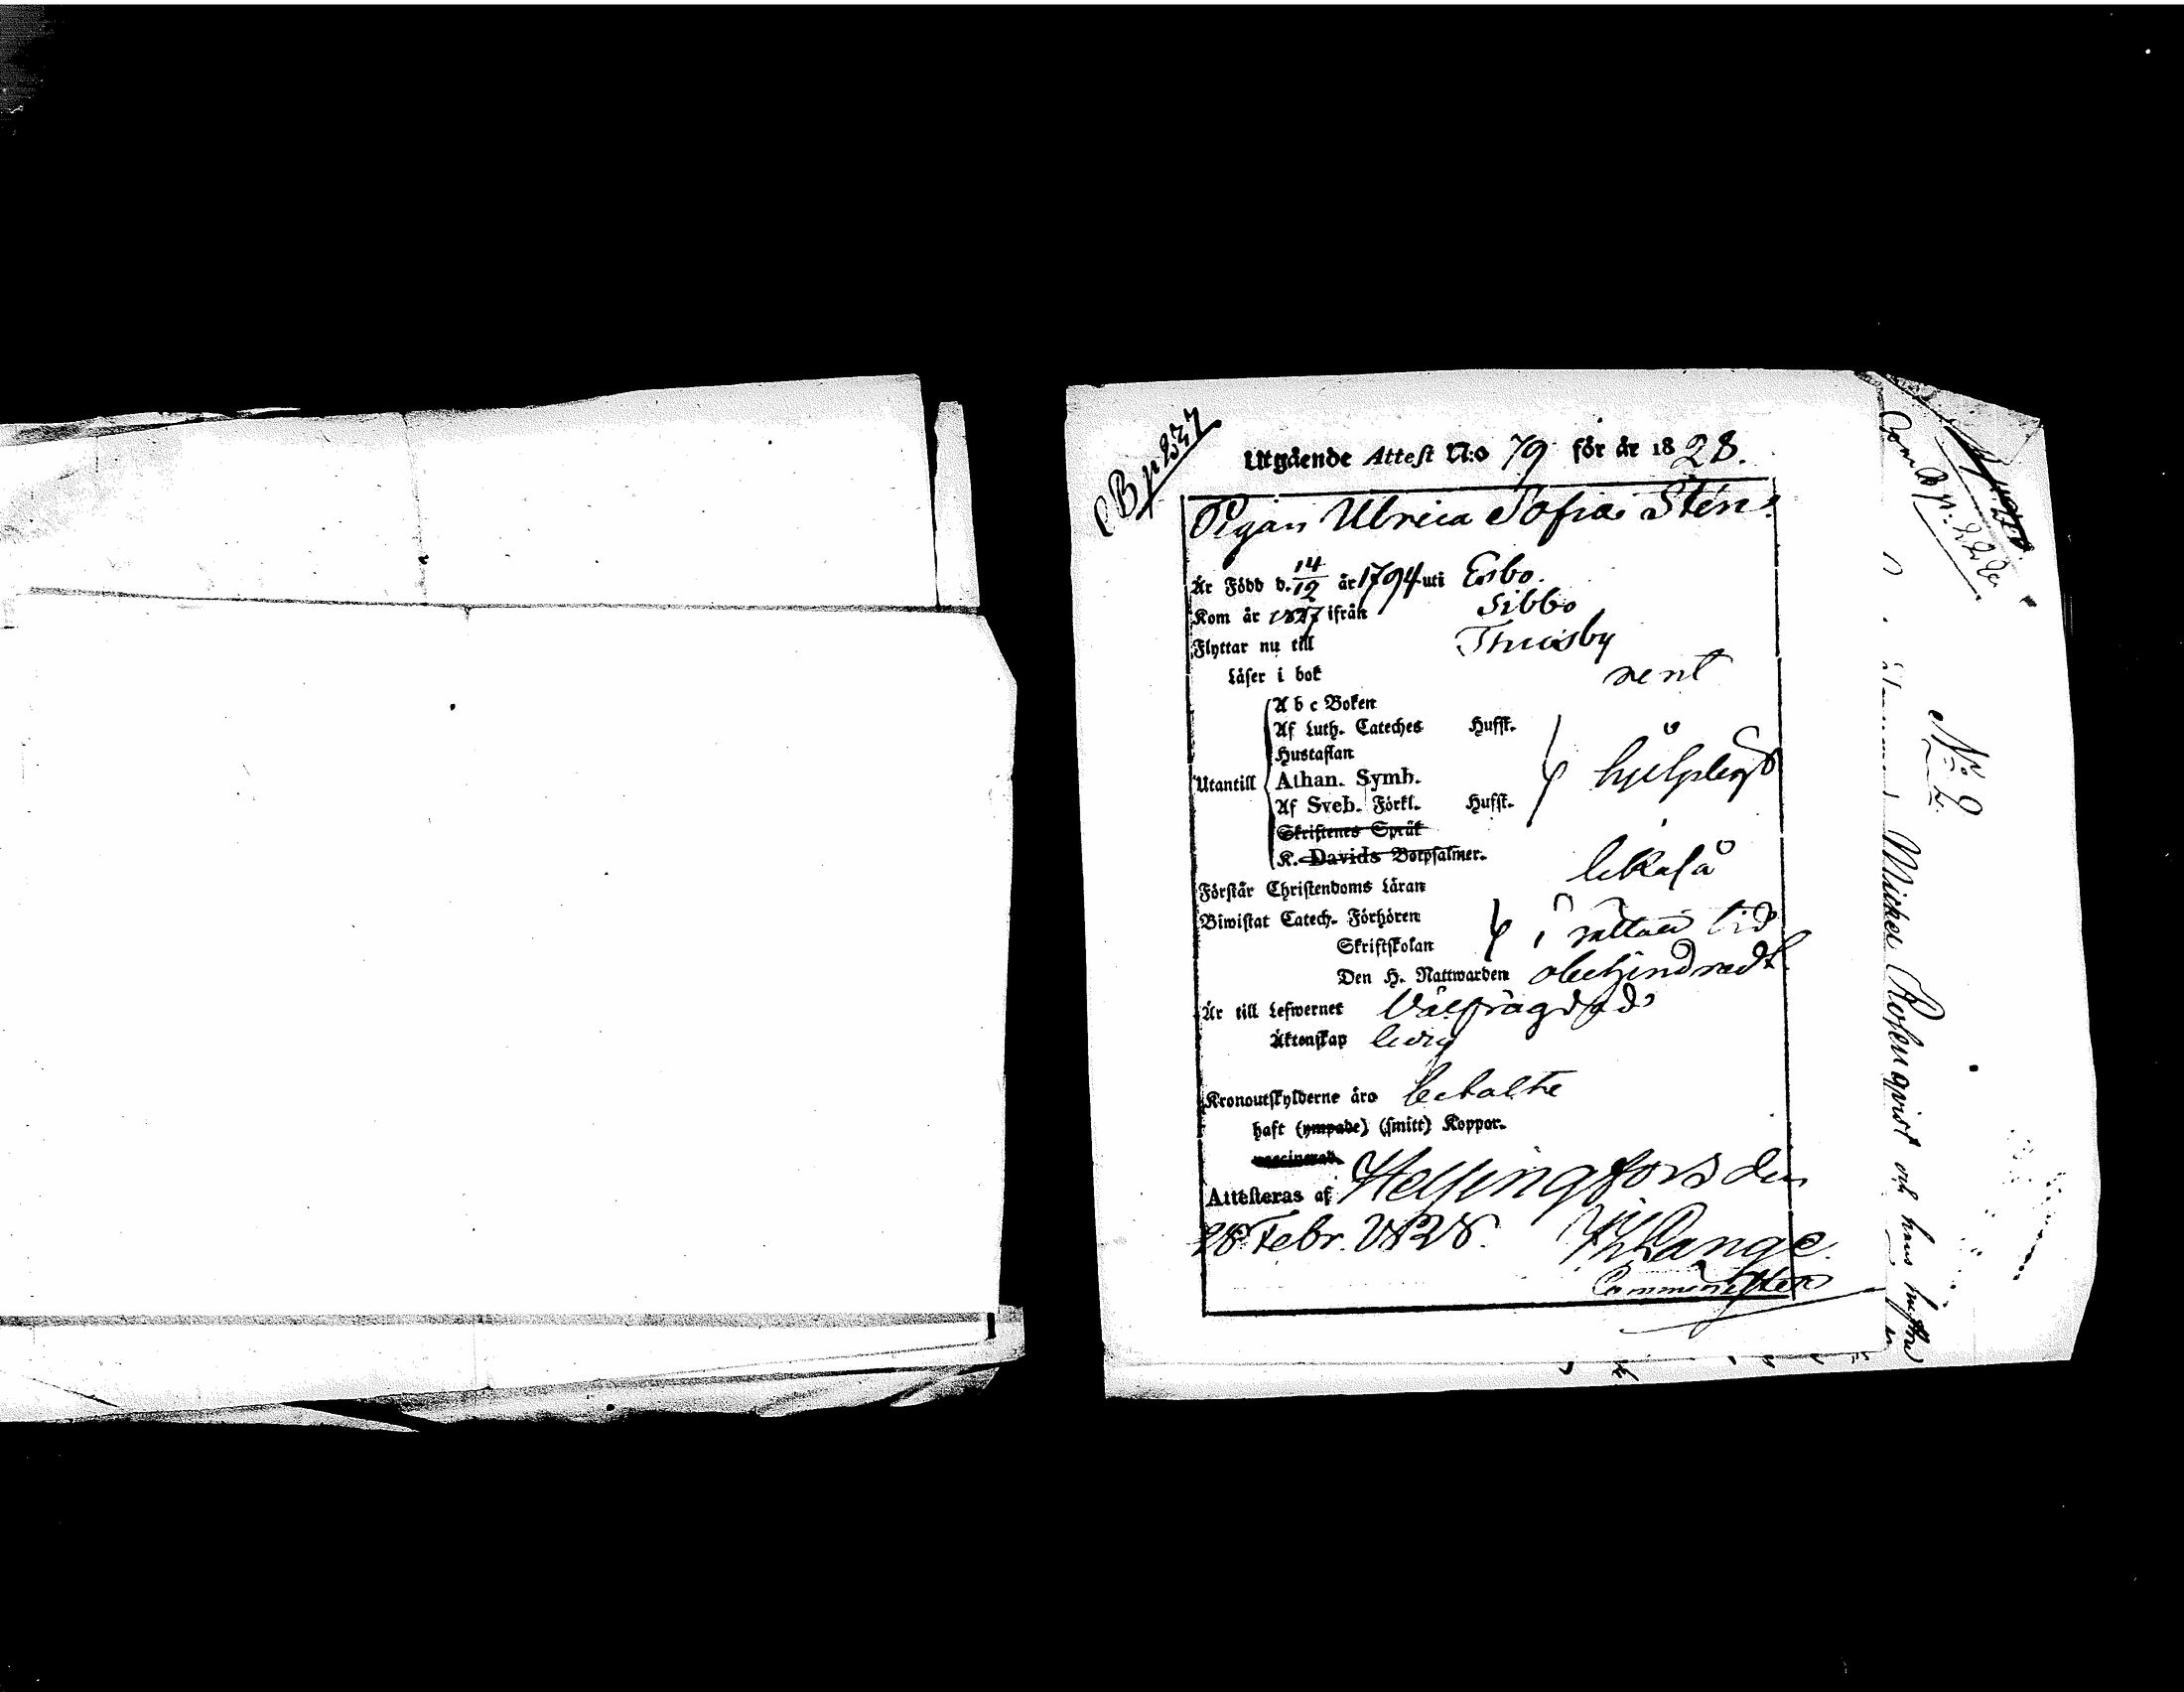 CB p 237
Utgående Attest N:o 79 för år 1828.
Pigan Ulrica Sofia Stén.
Är Född d. 14/12 år 1794 uti Esbo.
Kom år 1827 ifrån Sibbo
Flyttar nu till Thusby
Läser i bok rent
A b c Boken
Af Luth. Cateches Hufst.
Hustaflan
Utantill Athan. Symb. hjelpligt
Af Sveb. Förkl. Hufst.
Skriftenes Språk
K. Davids Botpsalmer.
Förstår Christendoms Läran likaså
Biwistat Catech. Förhören
Skriftskolan i rättan tid
Den H. Nattwarden obehindradt
Är till Lefwernet Välfrägdad
Äktenskap ledig
Kronoutskylderne äro betalte
haft (ympade) (smitt) Koppor.
vaccinerad.
Attesteras af Helsingfors den
28 Febr. 1828. Lange.
Comminister
No 2.
Michel Rosenqvist och hans hustru